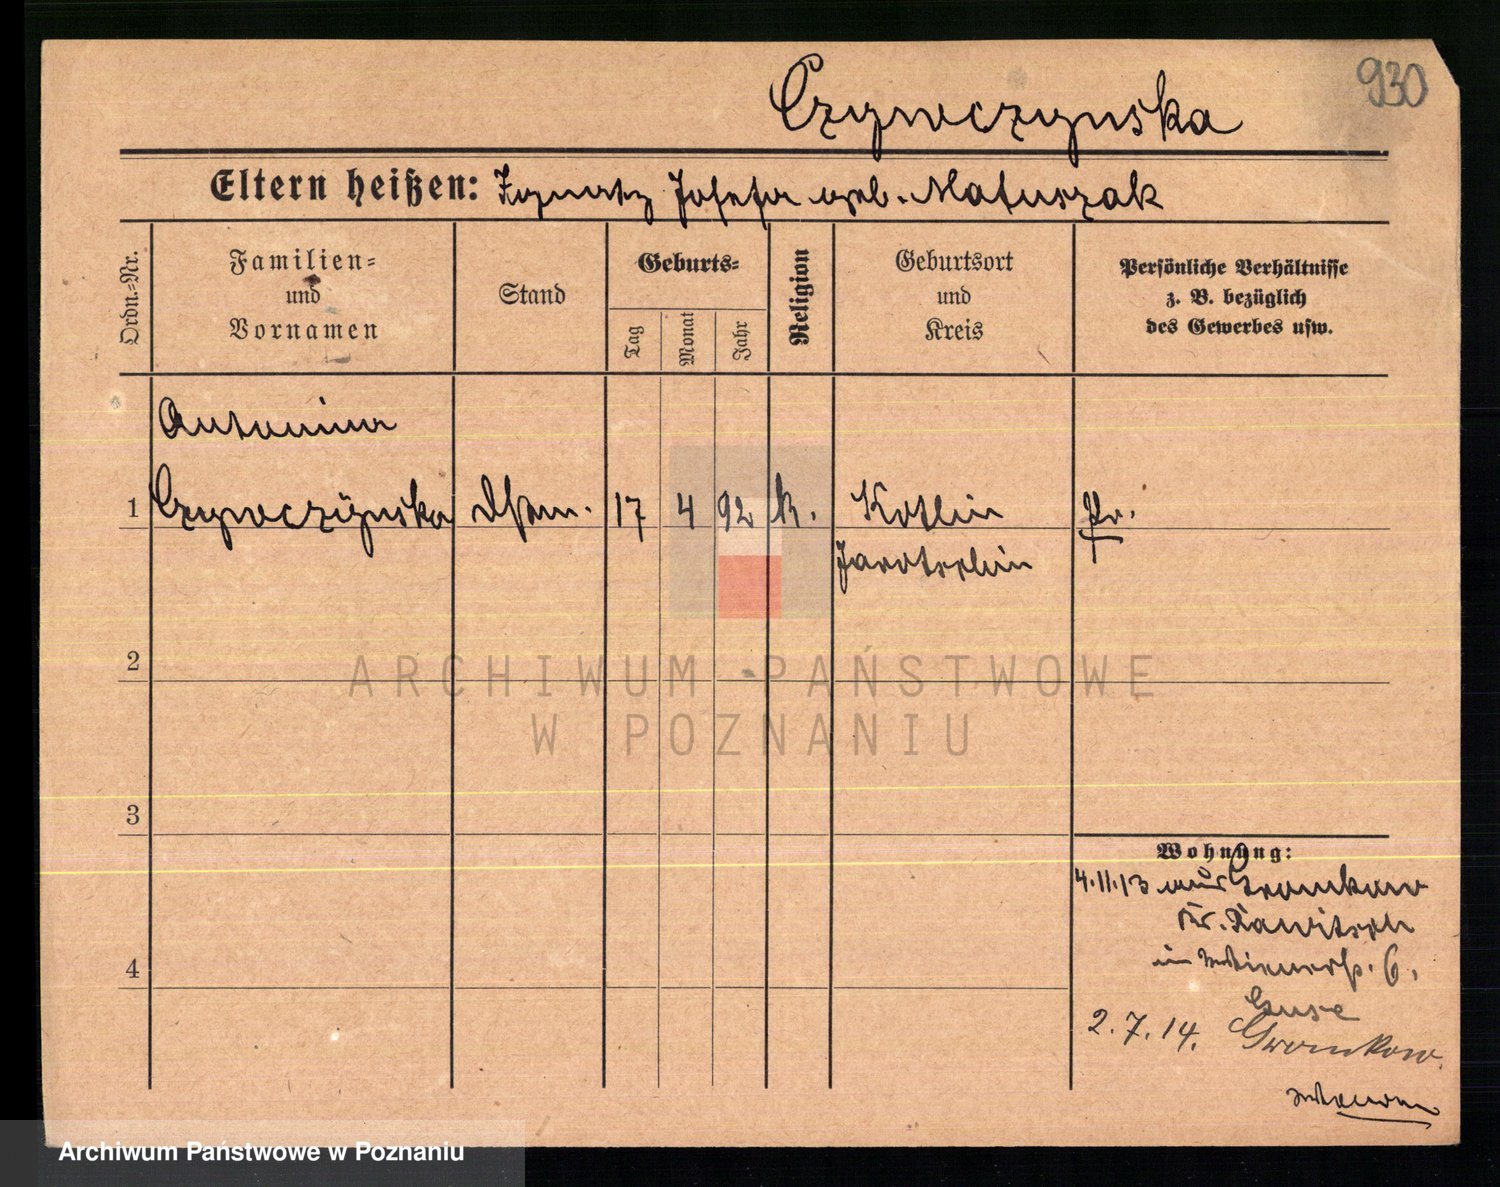 930
Czywczynska
Eltern heißen: Ignatz Josefa geb. Matuszak
Ordn.-Nr.
Familien-
und
Vornamen
Stand
Geburts-
Tag
Monat
Jahr
Religion
Geburtsort
und
Kreis
Persönliche Verhältnisse
z. B. bezüglich
des Gewerbes usw.
Antonina
1 Czywczÿnska 17 4 92 k. Kotlin Pr.
Jarotschin
2
ARCHIWUM PAŃSTWOWE
W POZNANIU
3
Wohnung:
4.11.13 aus Gromkow
Kr. Rawitsch
4
6.
2.7.14. Gromkow.
Archiwum Państwowe w Poznaniu